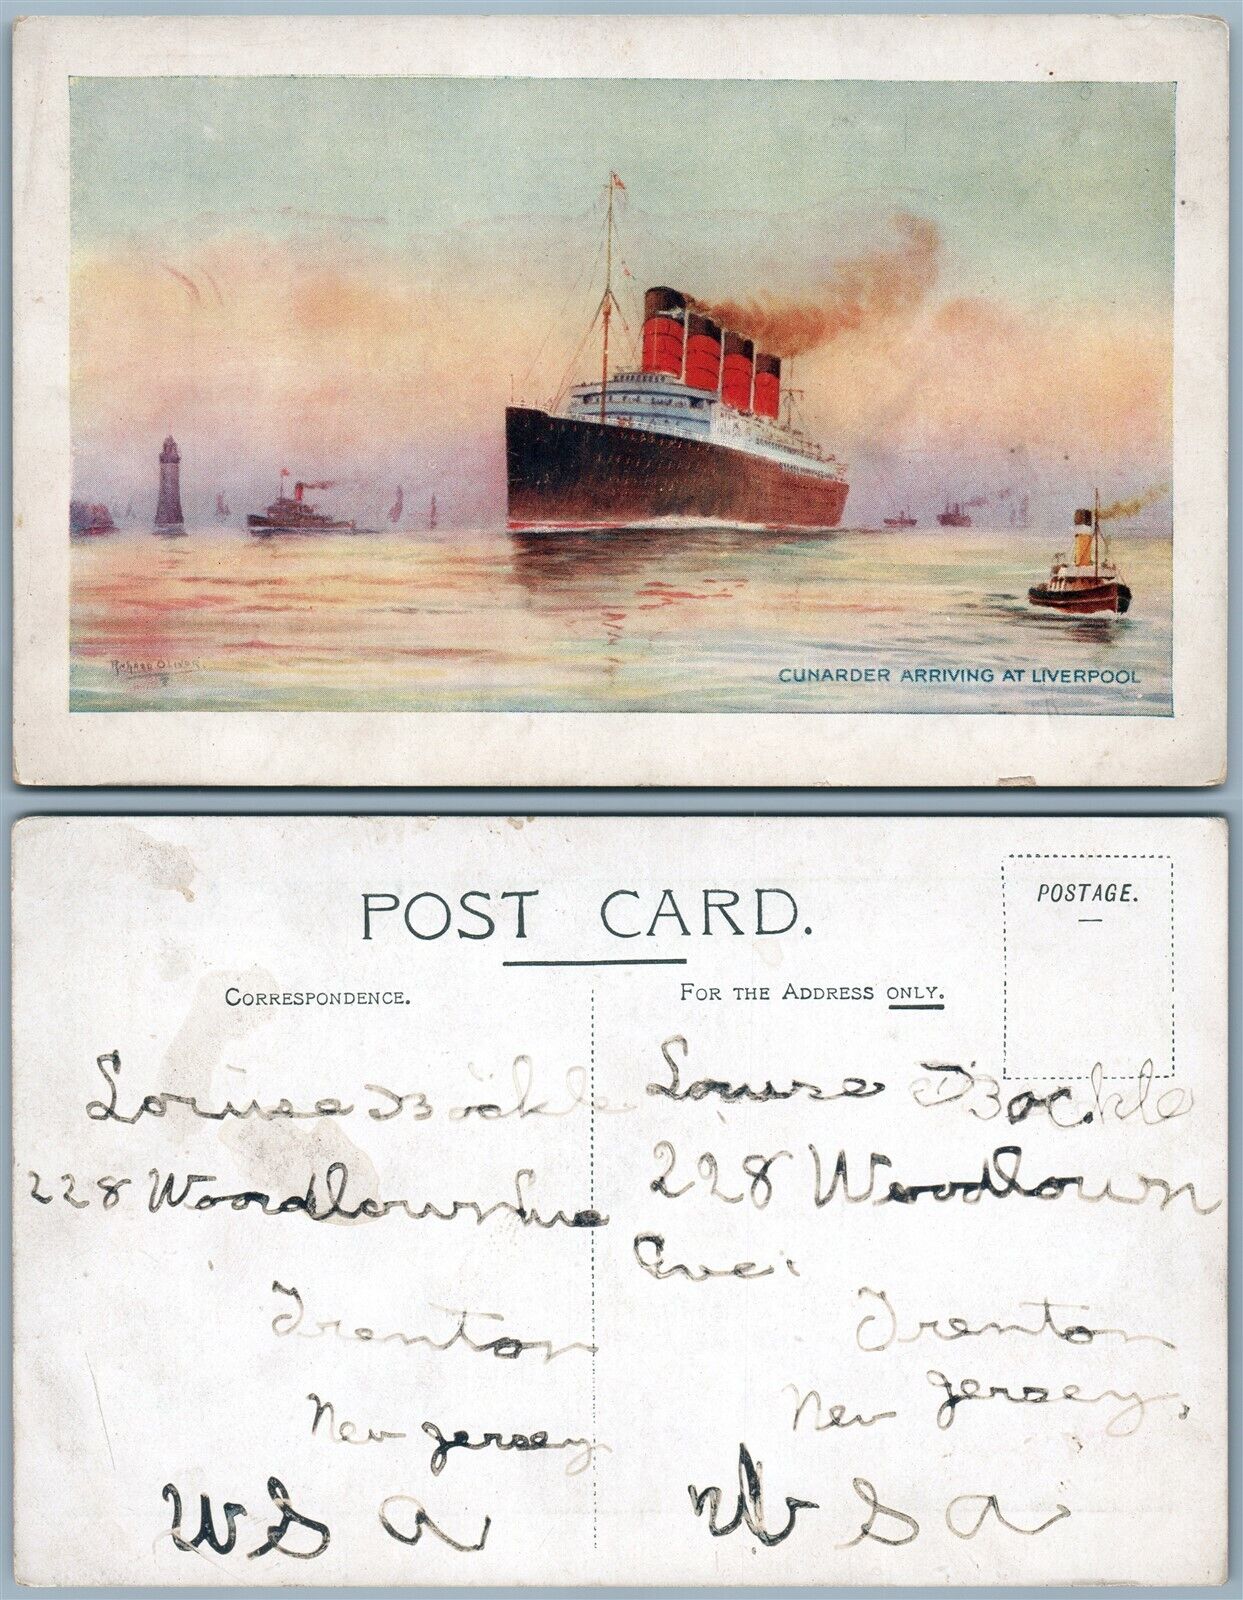 RICHARD OLIVER.
CUNARDER ARRIVING AT LIVERPOOL
POST CARD.
POSTAGE.
CORRESPONDENCE.
FOR THE ADDRESS ONLY.
Louise Böckle
228 Woodlawn Ave
Trenton
New Jersey
USA
Louise Böckle
228 Woodlawn
Ave.
Trenton
New Jersey,
USA